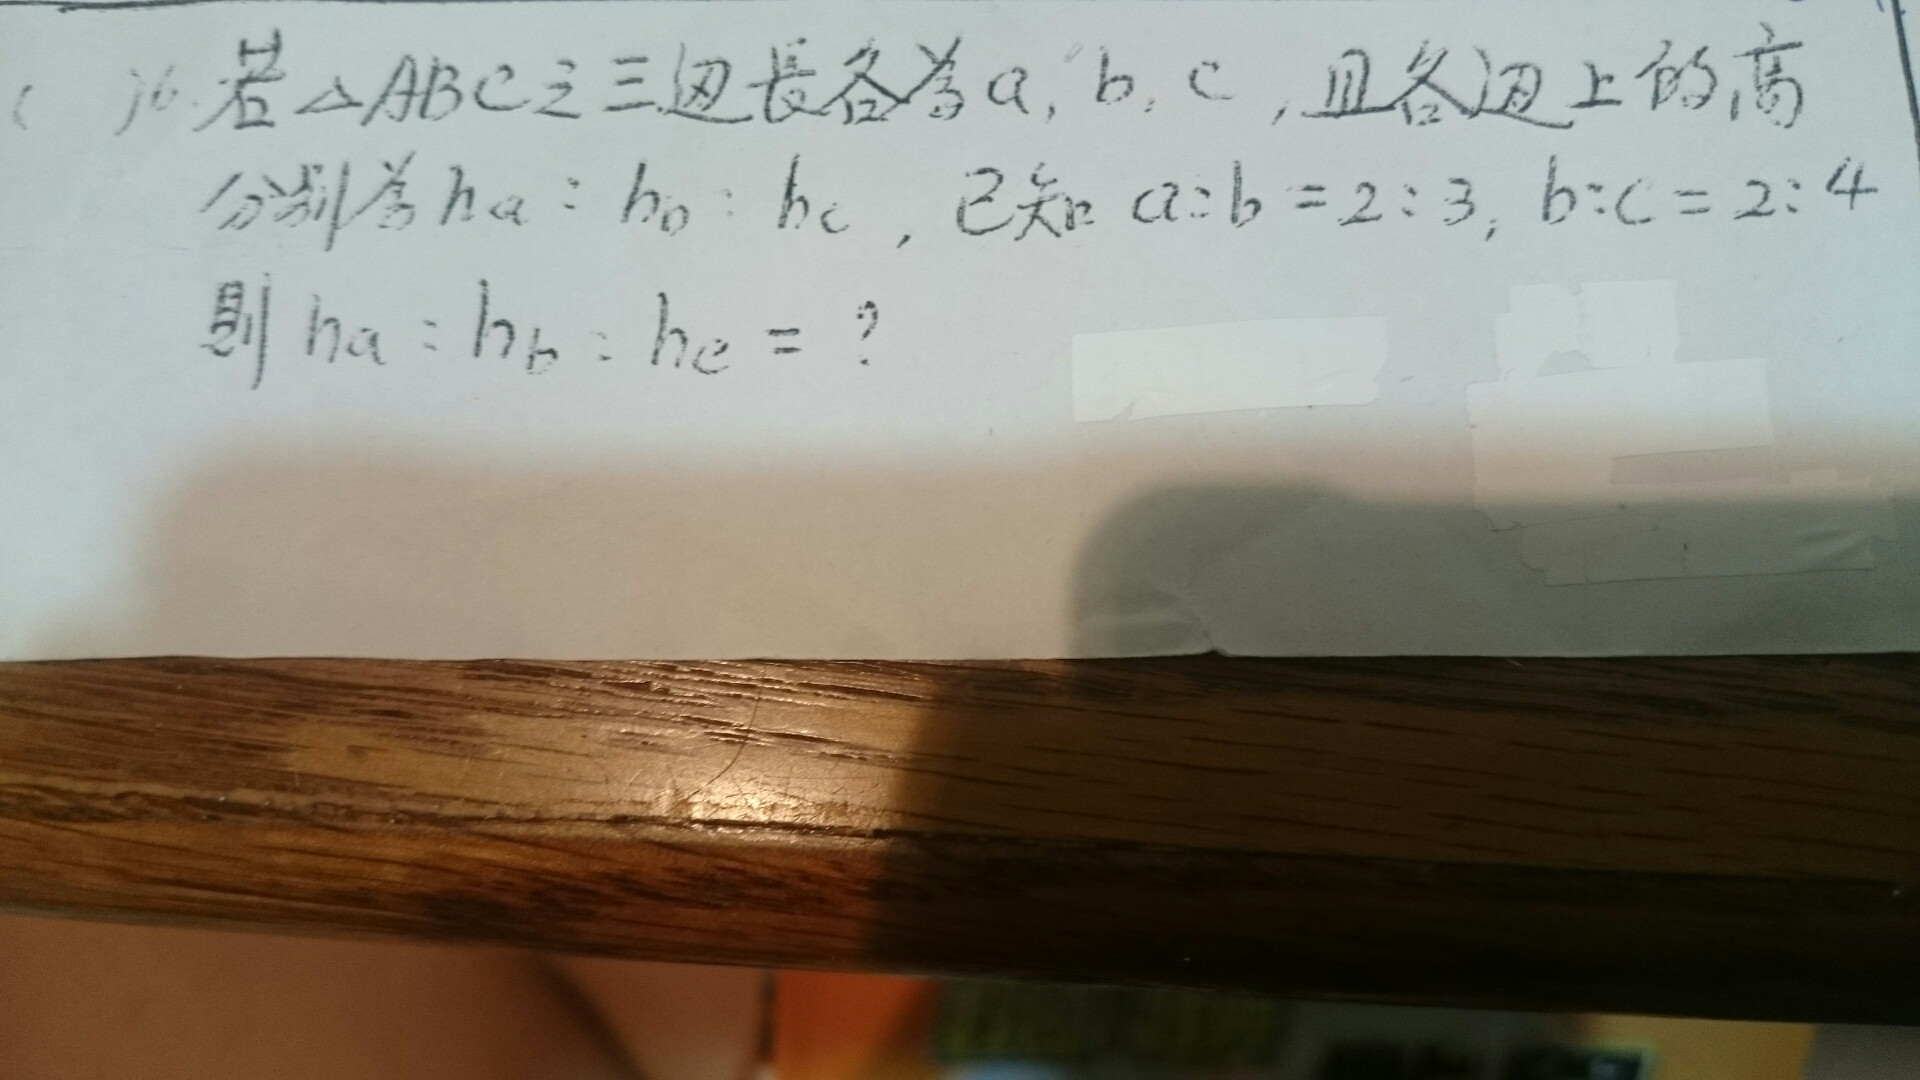 ( )6. 若△ABC之三边長各为a, b, c, 且各边上的高
分别为ha : hb : hc, 已知 a:b=2:3, b:c=2:4
則 ha : hb : hc = ?